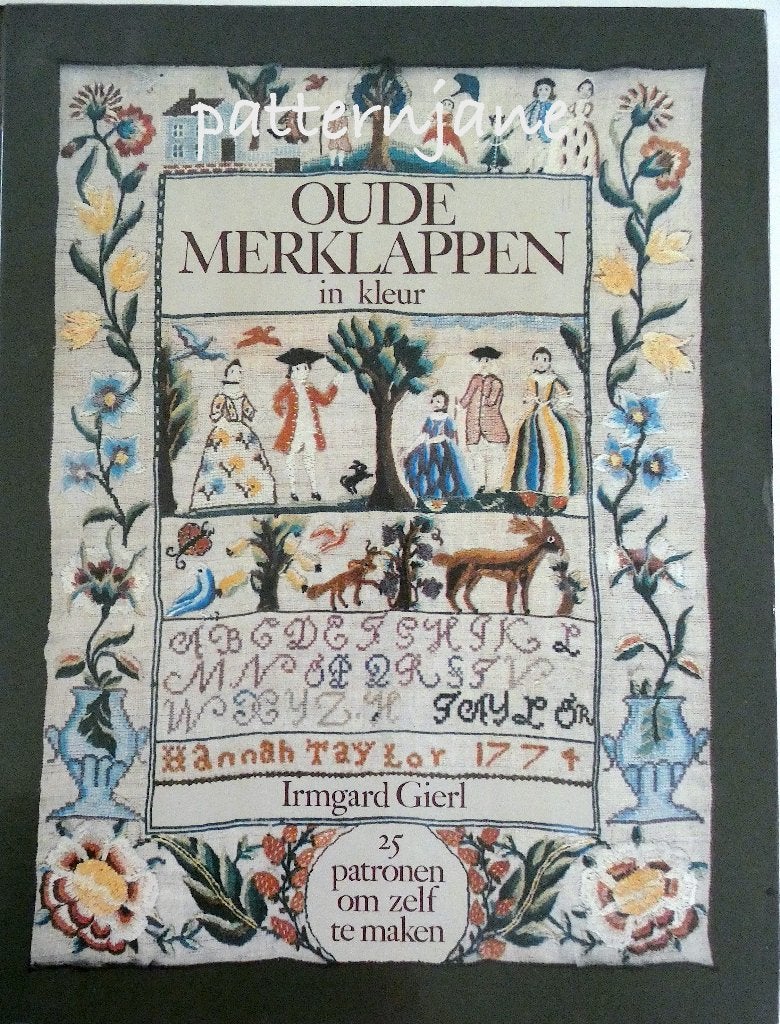 patternjane
OUDE
MERKLAPPEN
in kleur
A B C D E F G H I K L
M N O P Q R S T V
W X Y Z H TAYLOR
Hannah Taylor 1774
Irmgard Gierl
25
patronen
om zelf
te maken